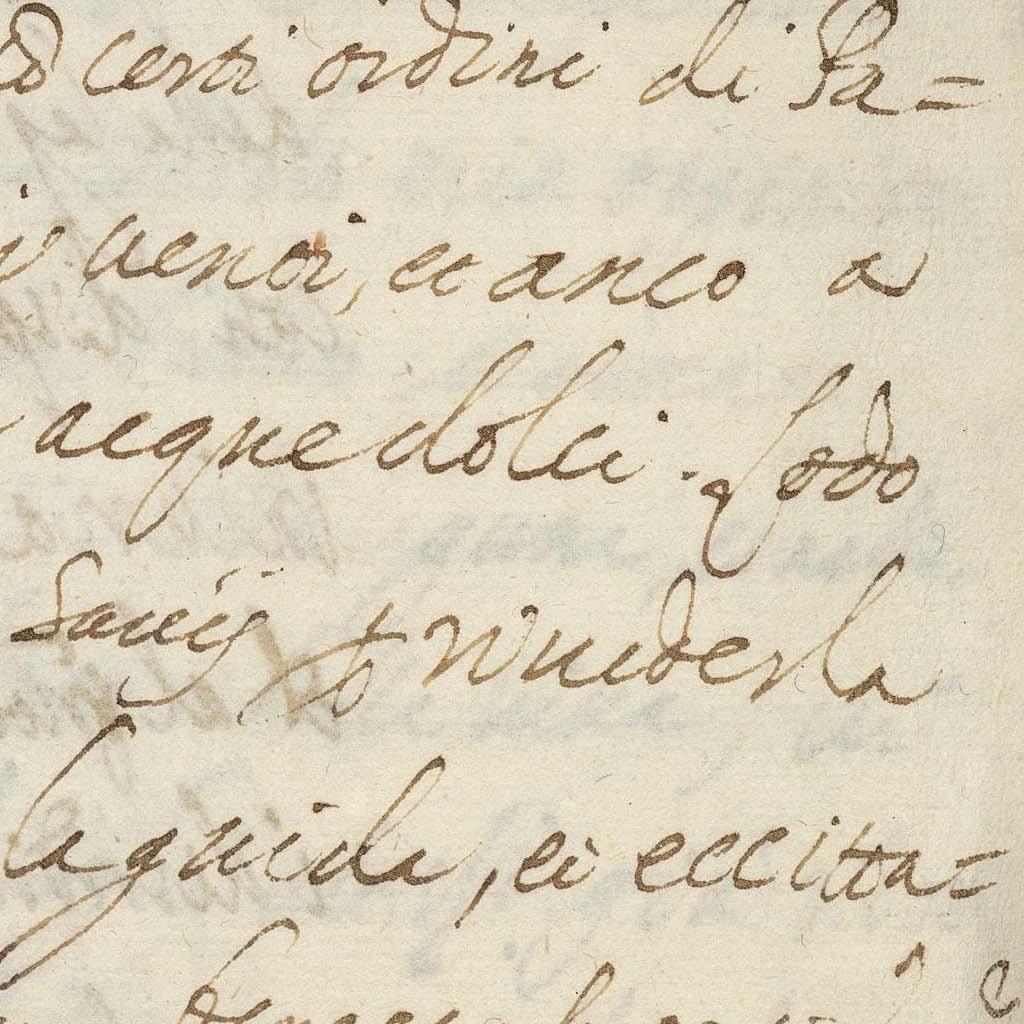 certi ordini di Pa=
uenti, et anco a
acque dolci. Lodo
Sauij rinuiderla
la guida, et eccitta=